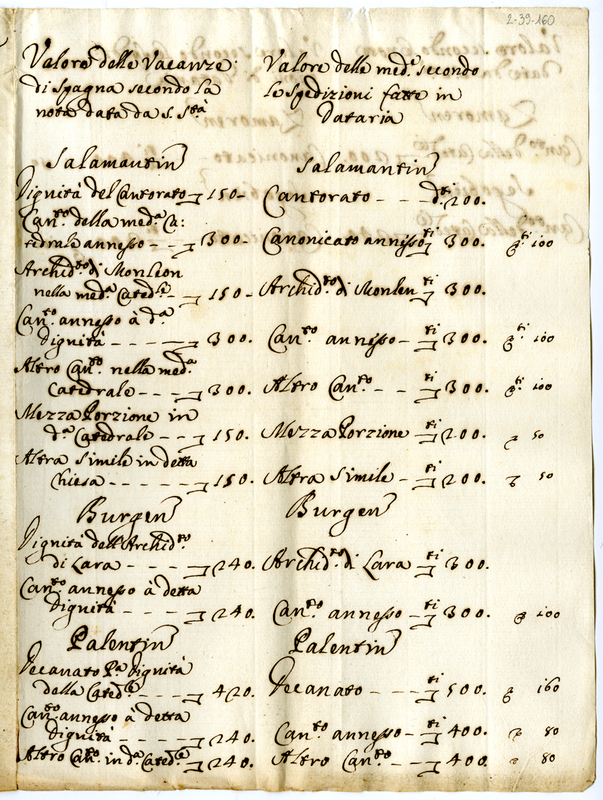 2-39-160
Valore delle Vacanze
di Spagna secondo la
nota data da S. Stà
Valore delle med.e secondo
le spedizioni fatte in
Dataria
Salamantin
Salamantin
Dignità del Cantorato 150-
Cantorato - - d.ti 200.
Can.to della med.a Ca:
tedrale annesso - - 300-
Canonicato annisso 300. 100
Archid.to di Monleon
nella med.a Cated.le - 150-
Archid.to di Monlen ti 300.
Can.to annesso à d.a
dignità - - - - - 300.
Can.to annisso - ti 300. ti 100
Altro Can.to nella med.a
Catedrale - - - 300.
Altro Can.to - - ti 300. ti 100
Mezza Porzione in
d.a Catedrale - - 150.
Mezza Porzione ti 200. 50
Altra Simile in detta
Chiesa - - - - - 150.
Altra Simile - ti 200. 50
Burgen
Burgen
Dignità dell'Archid.to
di Lara - - - - 240.
Archid.to di Lara ti 300.
Can.to annesso à detta
dignità - - - - 240.
Can.to annesso - ti 300. 100
Palentin
Palentin
Decanato P.a Dignità
della Cated.le - - - 420.
Decanato - - - - ti 500. 160
Can.to annesso à detta
dignità - - - - 240.
Can.to annesso - ti 400. 80
Altro Can.to in d.a Cated.le 240.
Altro Can.to - - 400. 80